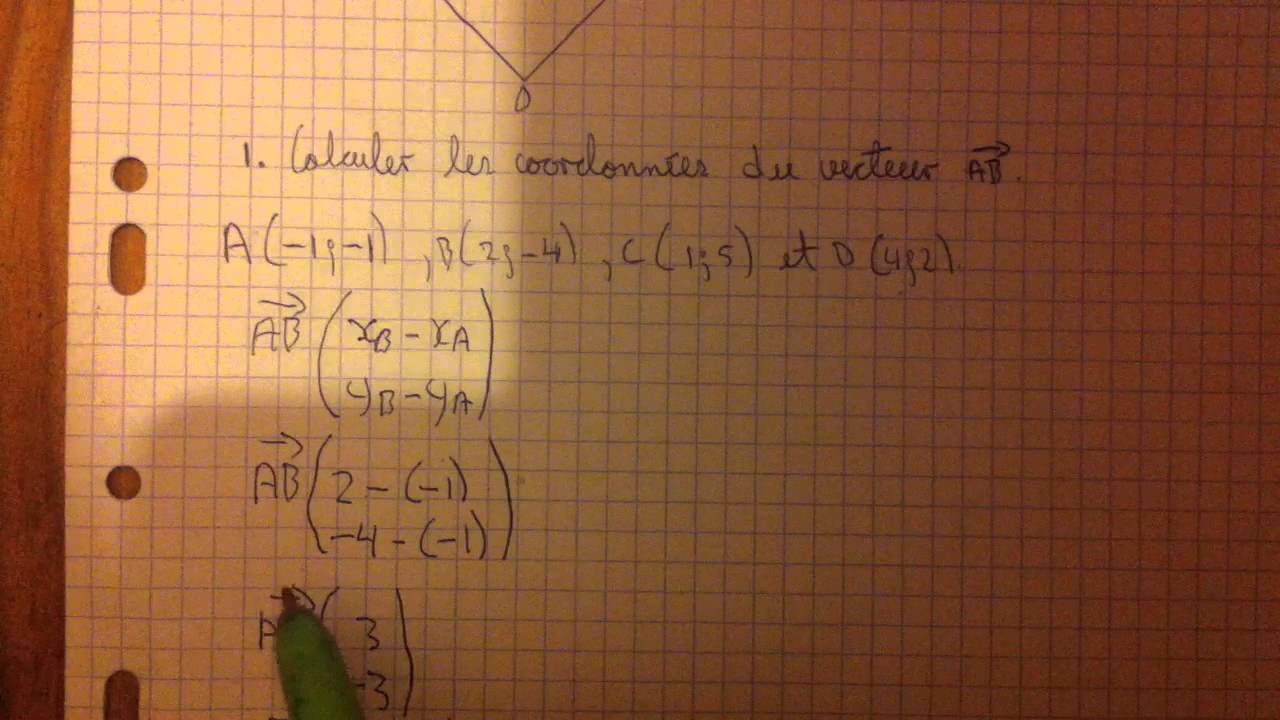 D
1. Calculer les coordonnées du vecteur AB⃗.
A(-1;-1), B(2;-4), C(1;5) et D(4;2).
AB⃗ ( xB - xA
yB - yA )
AB⃗ ( 2 - (-1)
-4 - (-1) )
A ( 3
-3 )